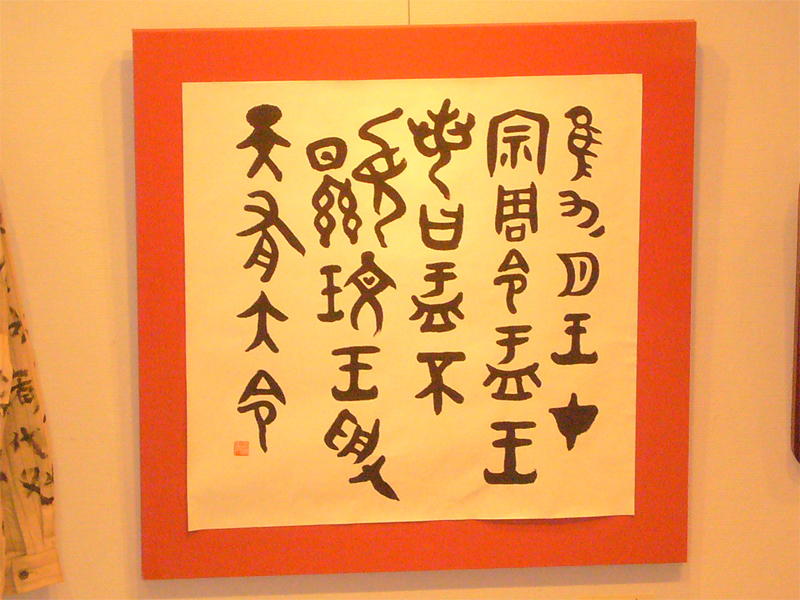 隹九月王才
宗周令盂王
若曰盂不
顯玟王受
天有大令